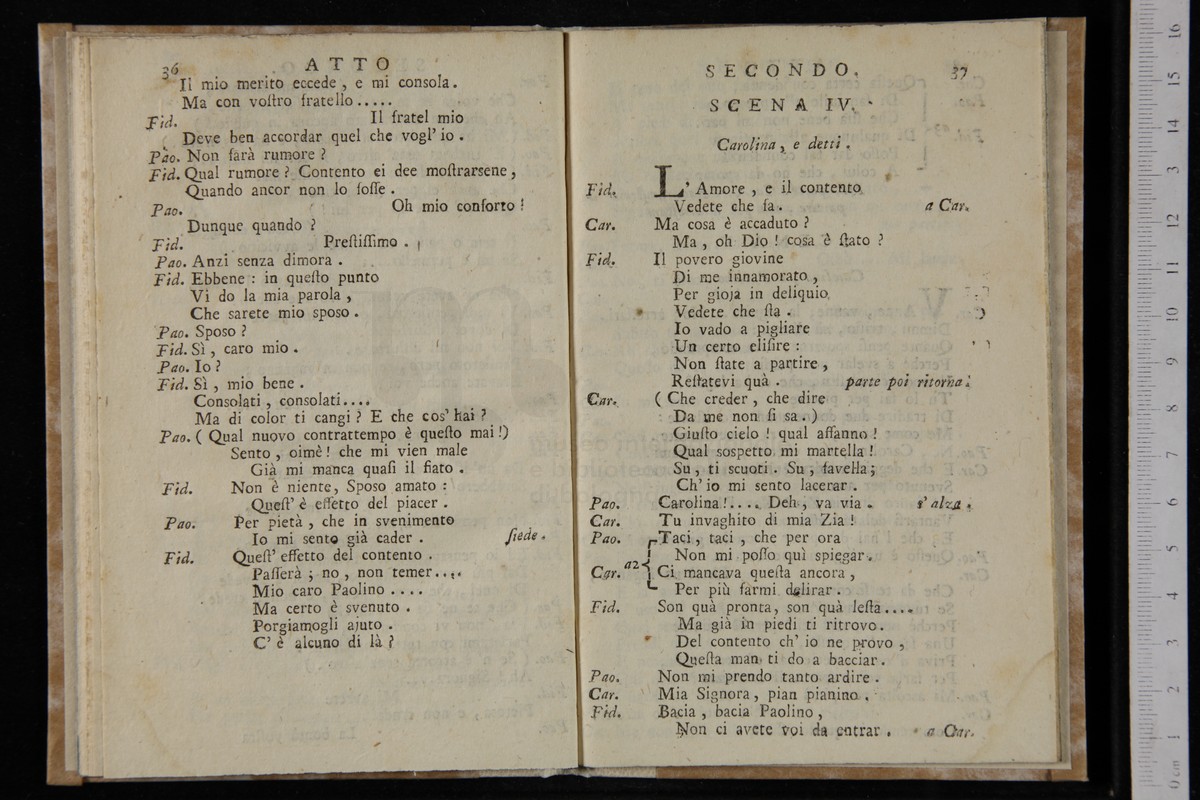 36 ATTO
Il mio merito eccede , e mi consola.
Ma con voſtro fratello .....
Fid. Il fratel mio
Deve ben accordar quel che vogl' io .
Pao. Non farà rumore ?
Fid. Qual rumore ? Contento ei dee moſtrarsene ,
Quando ancor non lo foſſe .
Pao. Oh mio conforto !
Dunque quando ?
Fid. Preſtiſſimo .
Pao. Anzi senza dimora .
Fid. Ebbene : in queſto punto
Vi do la mia parola ,
Che sarete mio sposo .
Pao. Sposo ?
Fid. Sì , caro mio .
Pao. Io ?
Fid. Sì , mio bene .
Consolati , consolati....
Ma di color ti cangi ? E che cos' hai ?
Pao. ( Qual nuovo contrattempo è queſto mai !)
Sento , oimè ! che mi vien male
Già mi manca quaſi il fiato .
Fid. Non è niente, Sposo amato :
Queſt' è effetto del piacer .
Pao. Per pietà , che in svenimento
Io mi sento già cader . ſiede .
Fid. Queſt' effetto del contento .
Paſſerà ; no , non temer....
Mio caro Paolino ....
Ma certo è svenuto .
Porgiamogli ajuto .
C' è alcuno di là ?
SECONDO. 37
SCENA IV.
Carolina , e detti .
Fid. L' Amore , e il contento
Vedete che fa . a Car.
Car. Ma cosa è accaduto ?
Ma , oh Dio ! cosa è ſtato ?
Fid. Il povero giovine
Di me innamorato ,
Per gioja in deliquio
Vedete che ſta .
Io vado a pigliare
Un certo eliſire :
Non ſtate a partire ,
Reſtatevi quà . parte poi ritorna.
Car. ( Che creder , che dire
Da me non ſi sa . )
Giuſto cielo ! qual affanno !
Qual sospetto mi martella !
Su , ti scuoti . Su , favella ;
Ch' io mi sento lacerar .
Pao. Carolina !.... Deh , va via . s' alza .
Car. Tu invaghito di mia Zia !
Pao. Taci , taci , che per ora
Non mi poſſo quì spiegar .
Car. a2 Ci mancava queſta ancora ,
Per più farmi delirar .
Fid. Son quà pronta, son quà leſta ....
Ma già in piedi ti ritrovo .
Del contento ch' io ne provo ,
Queſta man ti do a bacciar .
Pao. Non mi prendo tanto ardire .
Car. Mia Signora , pian pianino .
Fid. Bacia , bacia Paolino ,
Non ci avete voi da entrar . a Car.